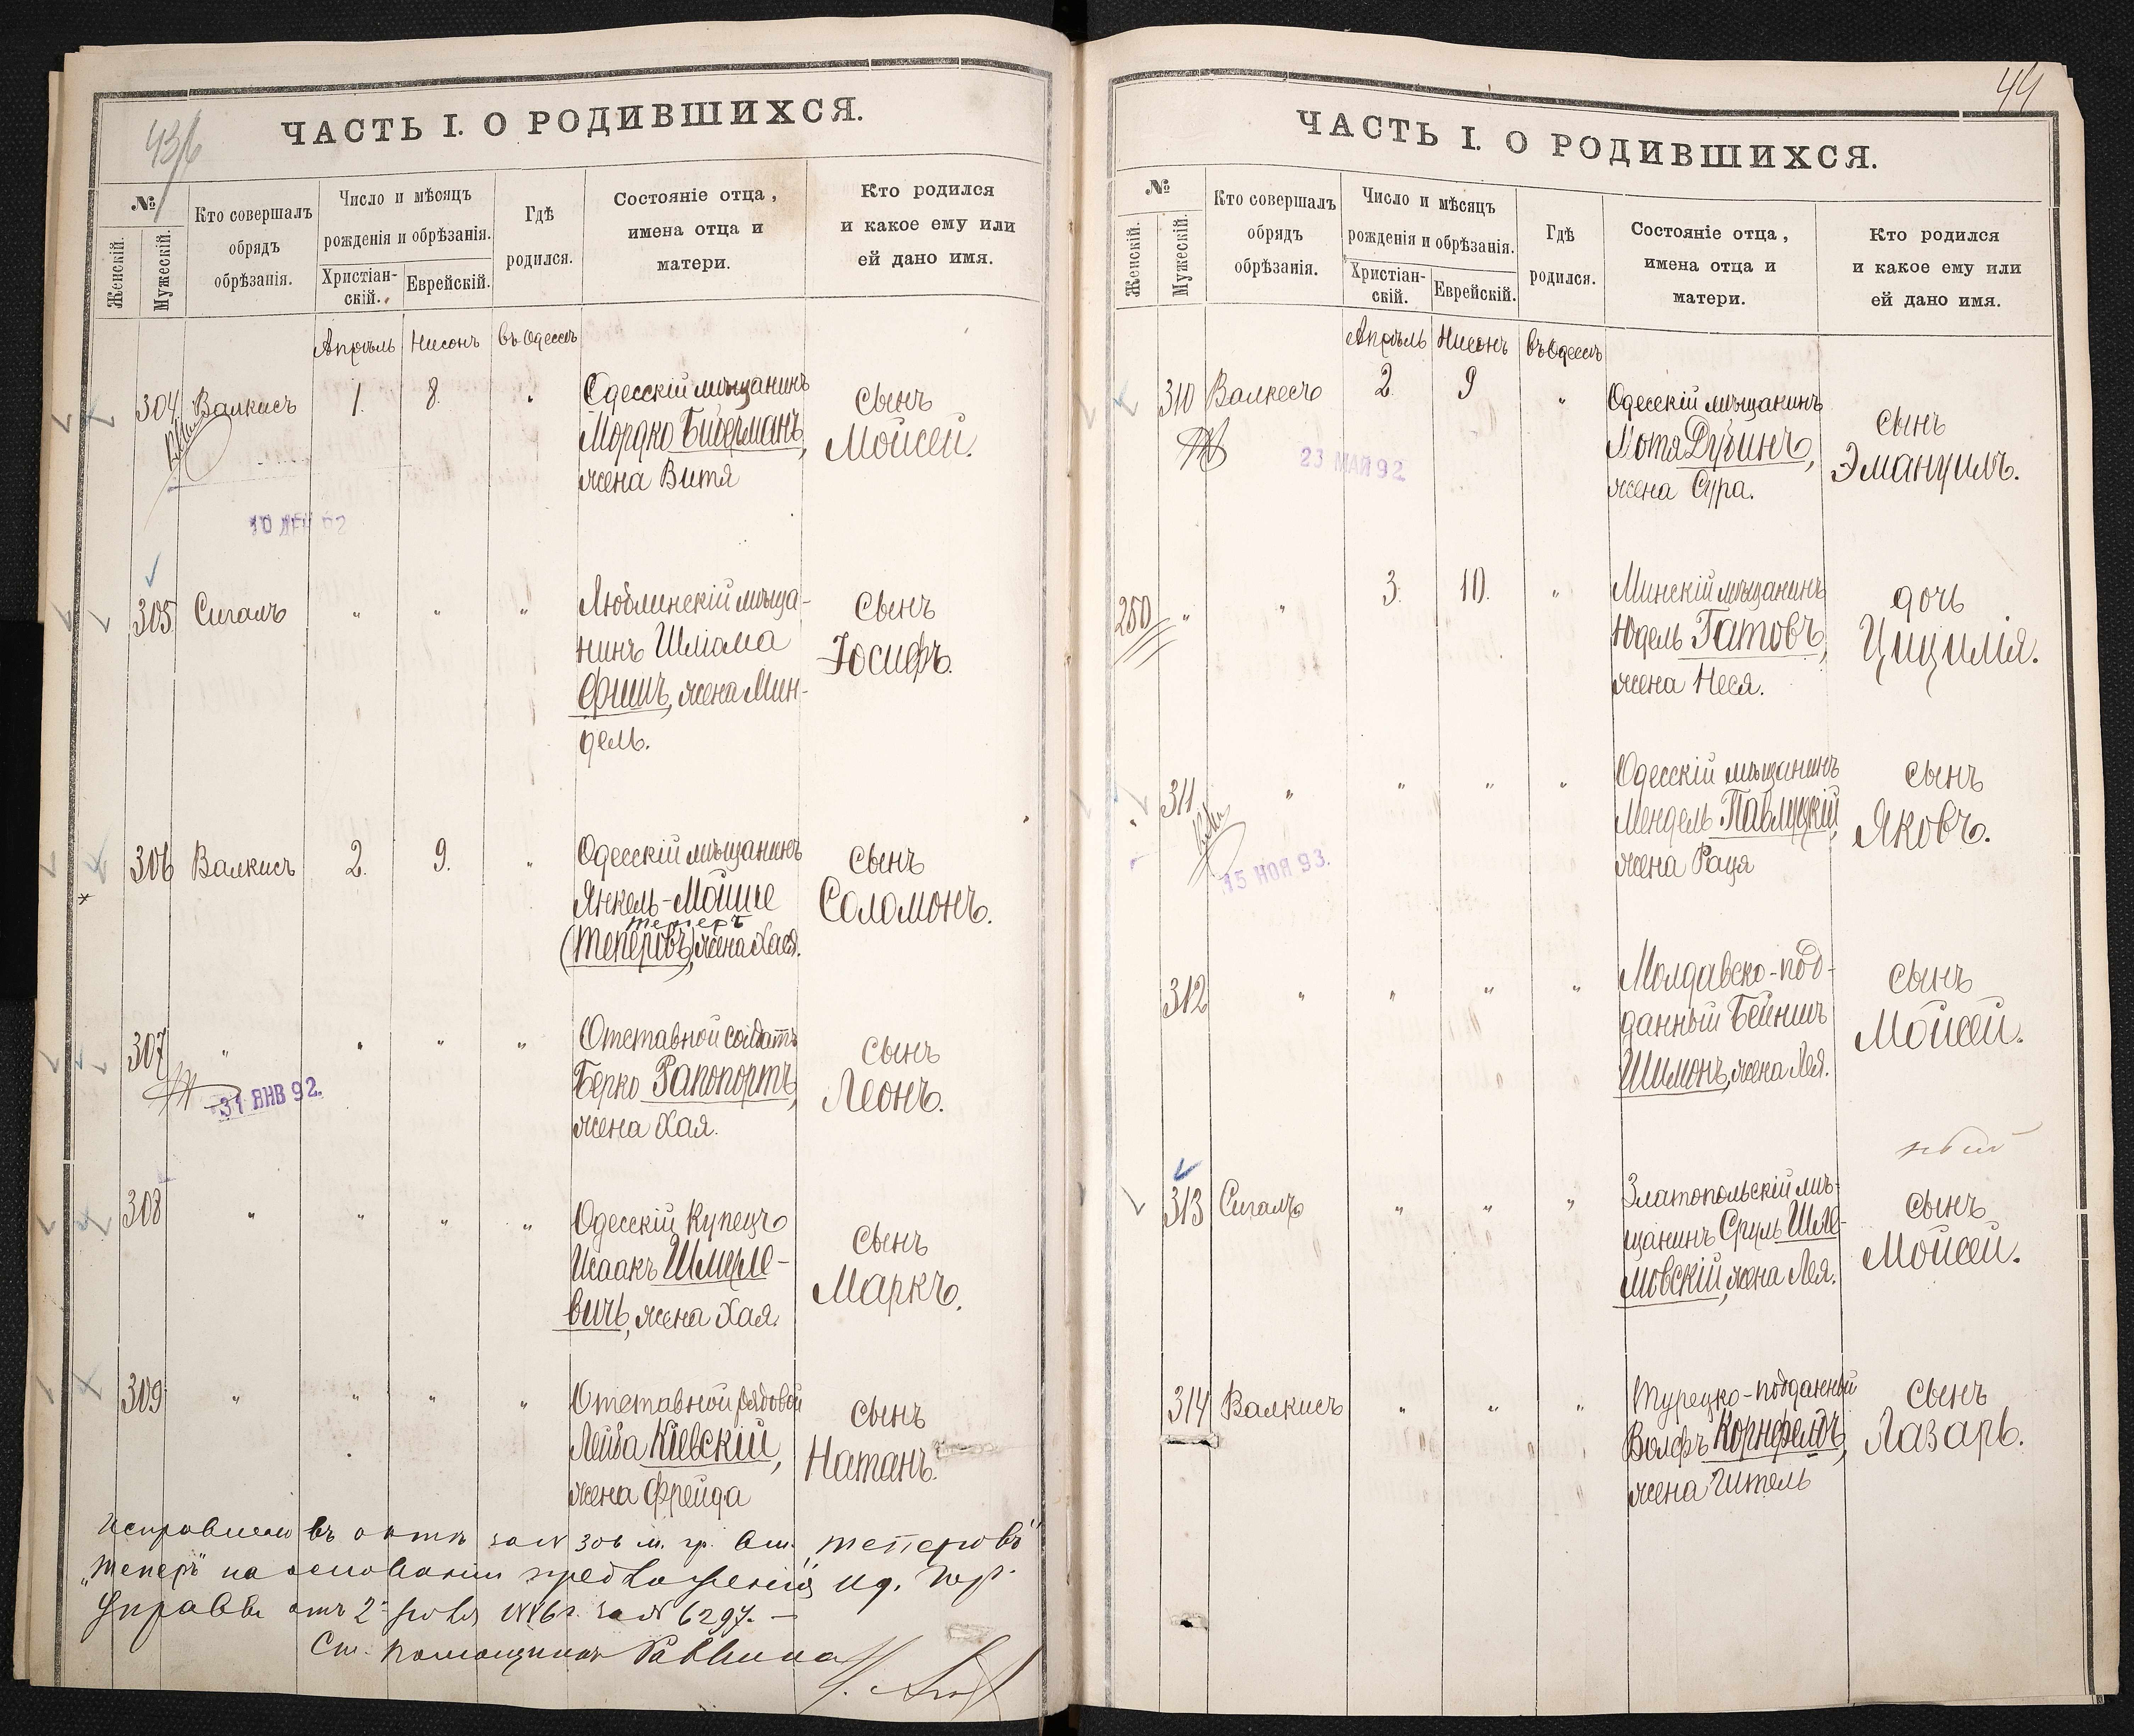 ЧАСТЬ I. О РОДИВШИХСЯ.
№
Женскій.
Мужескій.
Кто совершалъ
обрядъ
обрѣзанія.
Число и мѣсяцъ
рожденія и обрѣзанія.
Христіан-
скій.
Еврейскій.
Гдѣ
родился.
Состояніе отца,
имена отца и
матери.
Кто родился
и какое ему или
ей дано имя.
Апрѣль Нисонъ въ Одессѣ
304 Валкисъ 1. 8. „ Одесскій мѣщанинъ
Мордко Бидерманъ,
жена Витя
сынъ
Мойсей.
305 Сигалъ „ „ „ Люблинскій мѣща-
нинъ Шліома
Фишъ, жена Мин-
дель.
сынъ
Іосифъ.
306 Валкисъ 2. 9. „ Одесскій мѣщанинъ
Янкель-Мойше
теперъ
(Теперовъ), жена Хася.
сынъ
Соломонъ.
307 „ „ „ „ Отставной солдатъ
Берко Рапопортъ,
жена Хая.
сынъ
Леонъ.
31 ЯНВ 92.
308 „ „ „ „ Одесскій купецъ
Исаакъ Шмуле-
вичъ, жена Хая.
сынъ
Маркъ.
309 „ „ „ „ Отставной рядовой
Лейба Кіевскій,
жена Фрейда
сынъ
Натанъ.
Исправлено въ актѣ за № 306 м. гр. „Теперовъ"
„Теперъ" на основаніи предложенія Од. Гор.
Управы отъ за № 6297. —
Ст. Помощникъ Раввина
44
ЧАСТЬ I. О РОДИВШИХСЯ.
№
Женскій.
Мужескій.
Кто совершалъ
обрядъ
обрѣзанія.
Число и мѣсяцъ
рожденія и обрѣзанія.
Христіан-
скій.
Еврейскій.
Гдѣ
родился.
Состояніе отца,
имена отца и
матери.
Кто родился
и какое ему или
ей дано имя.
Апрѣль Нисонъ въ Одессѣ
310 Валкесъ 2. 9 „ Одесскій мѣщанинъ
Мотя Дубинъ,
жена Сура.
сынъ
Эмануилъ.
23 МАЙ 92
250 „ „ 3. 10. „ Минскій мѣщанинъ
Юдель Гатовъ,
жена Неся.
дочь
Цицилія.
311 „ „ „ „ Одесскій мѣщанинъ
Мендель Павлуцкій,
жена Раця
сынъ
Яковъ.
15 НОЯ 93.
312 „ „ „ „ Молдавско-под-
данный Бейнишъ
Шимонъ, жена Лея.
сынъ
Мойсей.
313 Сигалъ „ „ „ Златопольскій мѣ-
щанинъ Сруль Шле-
мовскій, жена Лея.
сынъ
Мойсей.
314 Валкисъ „ „ „ Турецко-подданный
Волфъ Корнфелдъ,
жена Гитель
сынъ
Лазарь.